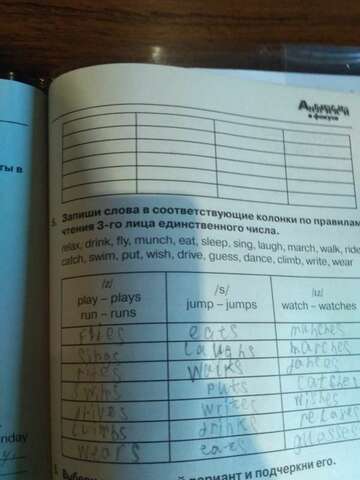 Английский
в фокусе
ты в
5. Запиши слова в соответствующие колонки по правилам
чтения 3-го лица единственного числа.
relax, drink, fly, munch, eat, sleep, sing, laugh, march, walk, ride
catch, swim, put, wish, drive, guess, dance, climb, write, wear
/z/ /s/ /ɪz/
play – plays jump – jumps watch – watches
run – runs
flies eats munches
sings laughs marches
rides walks dances
swims puts catches
drives writes wishes
climbs drinks relaxes
wears eats guesses
nday
вариант и подчеркни его.